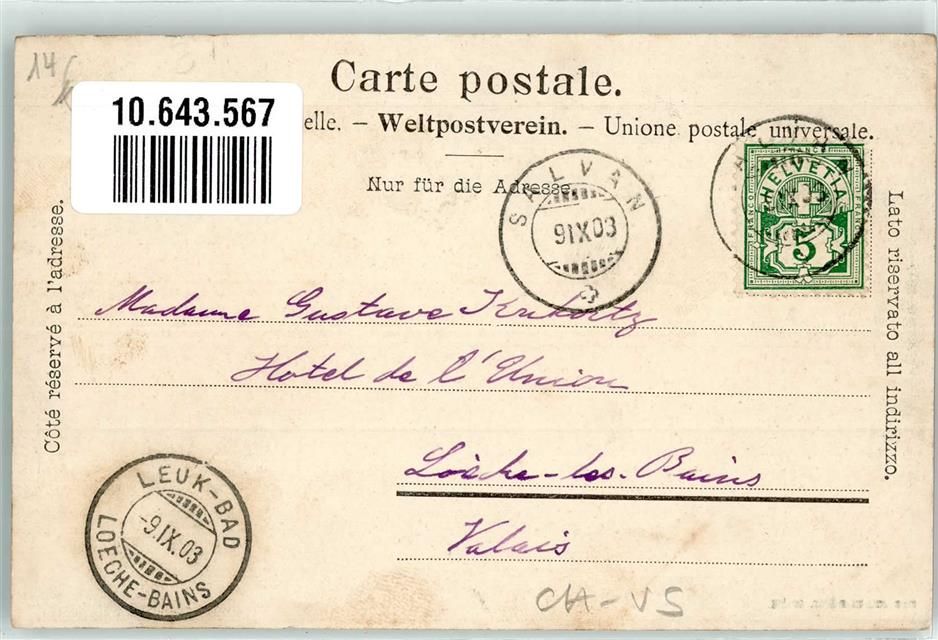 14
Carte postale.
10.643.567
elle. – Weltpostverein. – Unione postale universale.
Nur für die Adresse.
SALVAN
9 IX 03
HELVETIA
FRANCO
5
Côté réservé à l'adresse.
Lato riservato all indirizzo.
Madame Gustave
Hotel de l'Union
Loèche-les-Bains
Valais
LEUK-BAD
-9.IX.03
LOECHE-BAINS
CH-VS